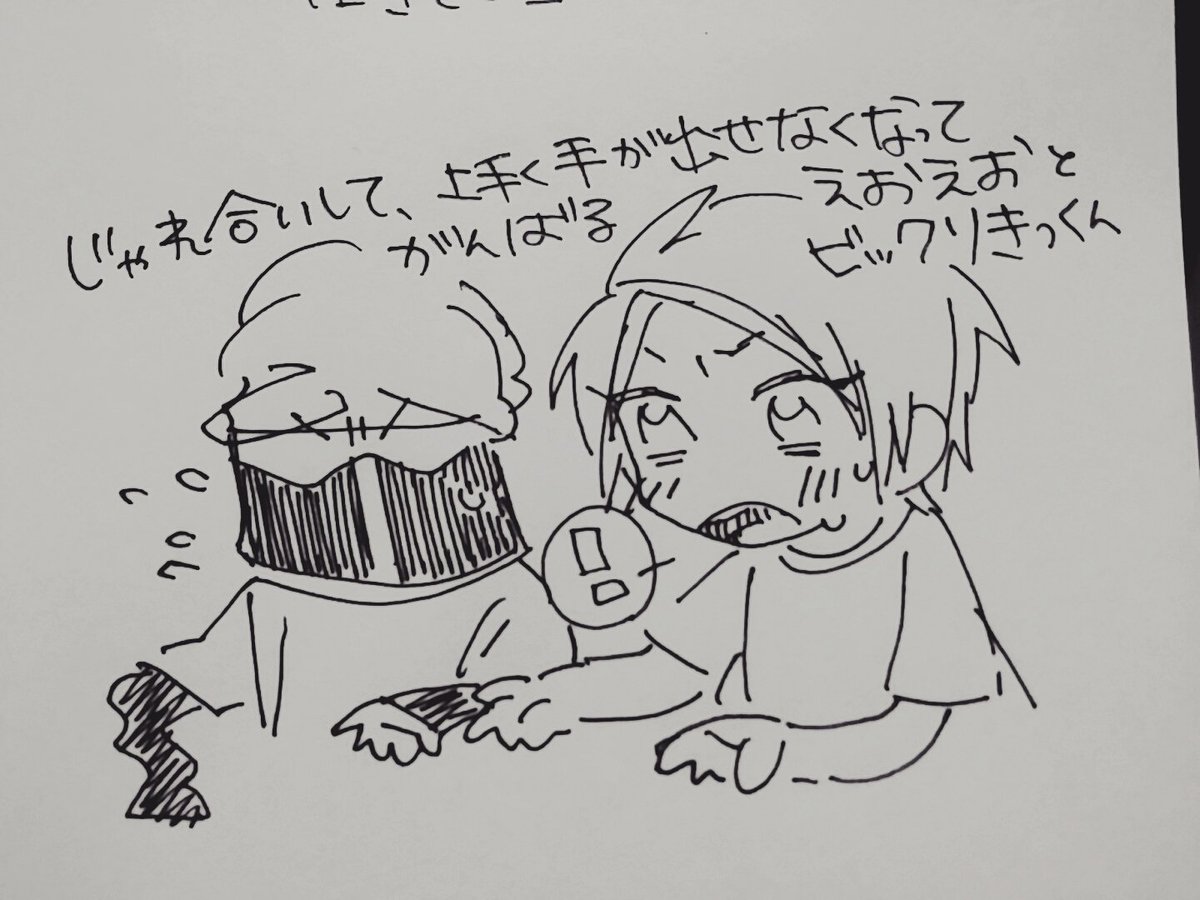 じゃれ合いして、上手く手が出せなくなって
がんばる
えおえおと
ビックリきっくん